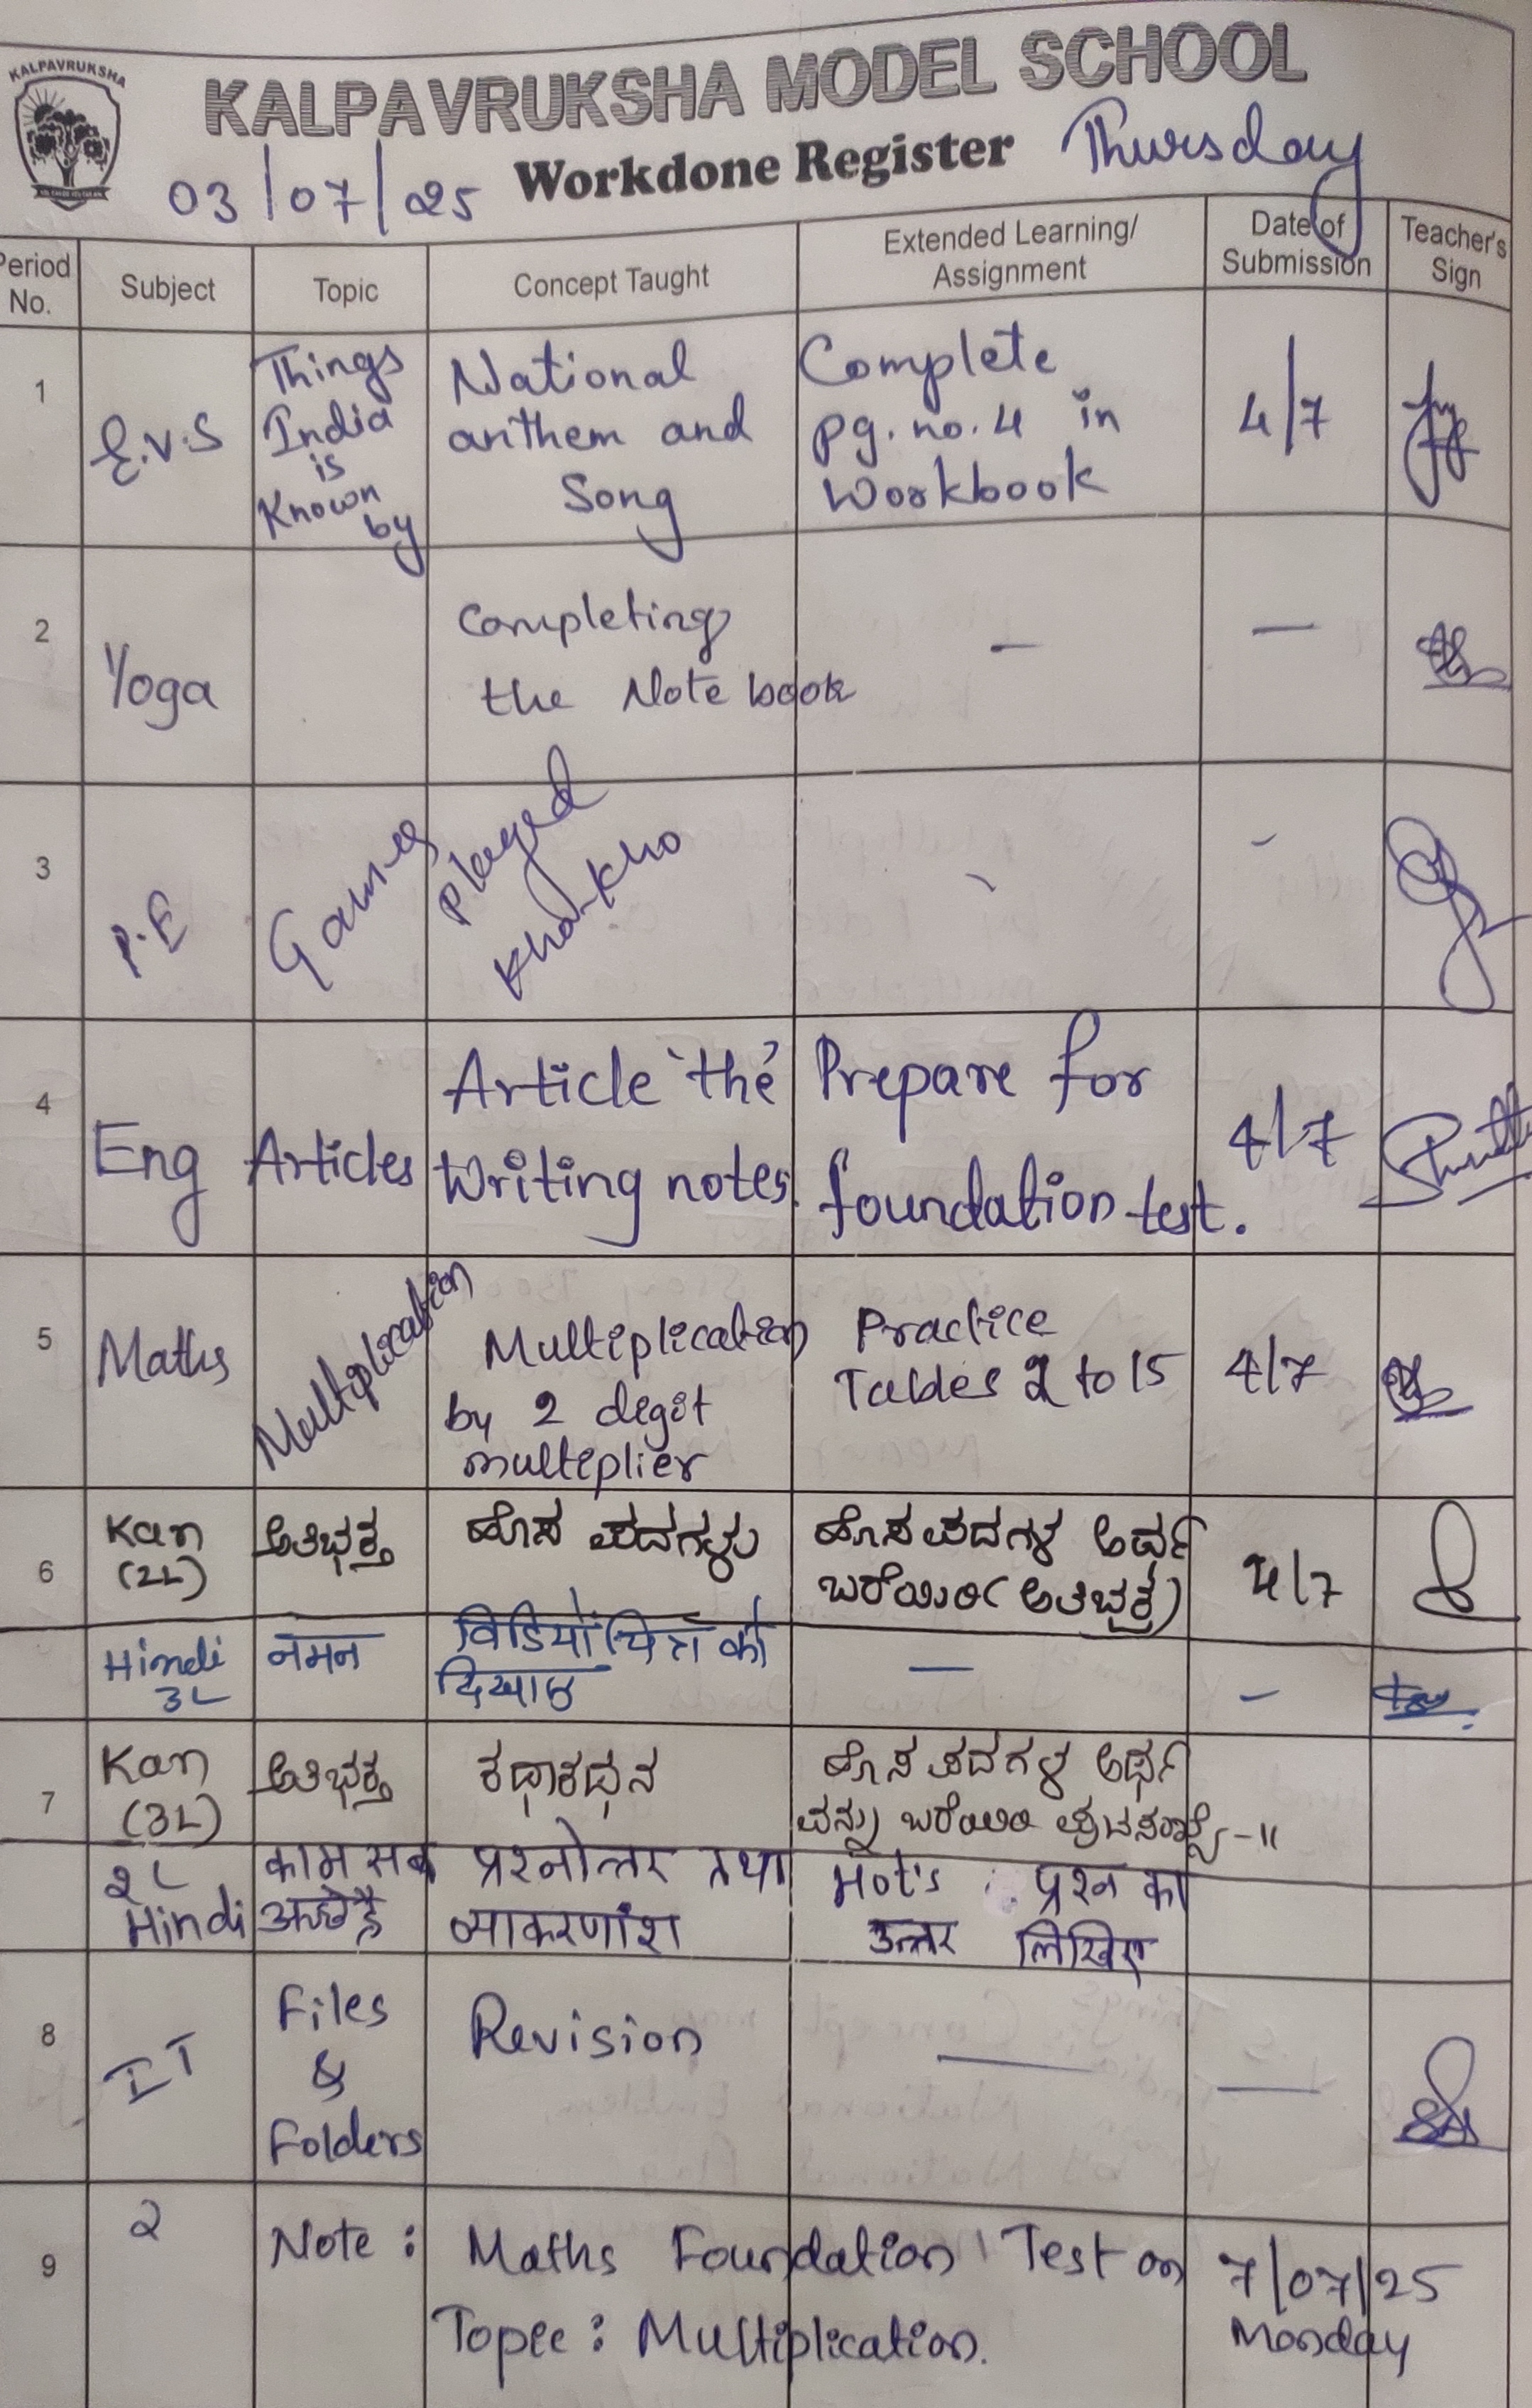 KALPAVRUKSHA
KALPAVRUKSHA MODEL SCHOOL
03/07/25 Workdone Register Thursday
Period No. Subject Topic Concept Taught Extended Learning/ Assignment Date of Submission Teacher's Sign
1 E.V.S Things India is Known by National anthem and Song Complete pg. no. 4 in Workbook 4/7
2 Yoga Completing the Note book — —
3 P.E Games Played Kho-Kho - -
4 Eng Articles Article 'the' Writing notes. Prepare for foundation test. 4/7
5 Maths Multiplication Multiplication by 2 digit multiplier Practice Tables 2 to 15 4/7
6 Kan (2L) ಅತಿಭಕ್ತ ಹೊಸ ಪದಗಳು ಹೊಸ ಪದಗಳ ಅರ್ಥ ಬರೆಯಿರಿ (ಅತಿಭಕ್ತ) 4/7
Hindi 3L नमन विडियों चित्र को दिखाऐ — —
7 Kan (3L) ಅತಿಭಕ್ತ ಕಥಾಕಥನ ಹೊಸ ಪದಗಳ ಅರ್ಥ ವನ್ನು ಬರೆಯಿರಿ ಪುಟಸಂಖ್ಯೆ-11
2L Hindi काम सब अच्छे है प्रश्नोत्तर तथा व्याकरणांश Hot's प्रश्न का उत्तर लिखिए
8 IT Files & Folders Revision — —
9 2 Note: Maths Foundation Test on 7/07/25
Topic: Multiplication. Monday